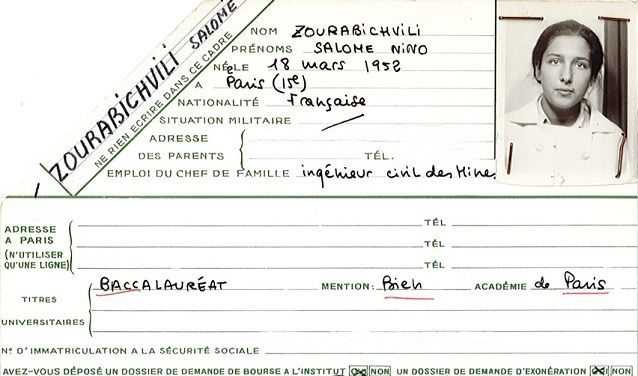 ZOURABICHVILI SALOME
NE RIEN ECRIRE DANS CE CADRE
NOM ZOURABICHVILI
PRÉNOMS SALOME NINO
NÉ LE 18 mars 1952
A Paris (15e)
NATIONALITÉ Française
SITUATION MILITAIRE
ADRESSE
DES PARENTS TÉL.
EMPLOI DU CHEF DE FAMILLE ingénieur civil des Mines
ADRESSE
A PARIS
(N'UTILISER
QU'UNE LIGNE)
TÉL
TÉL
TÉL
TITRES
UNIVERSITAIRES
BACCALAURÉAT MENTION: Bien ACADÉMIE de Paris
N° D'IMMATRICULATION A LA SÉCURITÉ SOCIALE
AVEZ-VOUS DÉPOSÉ UN DOSSIER DE DEMANDE DE BOURSE A L'INSTITUT OUI NON UN DOSSIER DE DEMANDE D'EXONÉRATION OUI NON